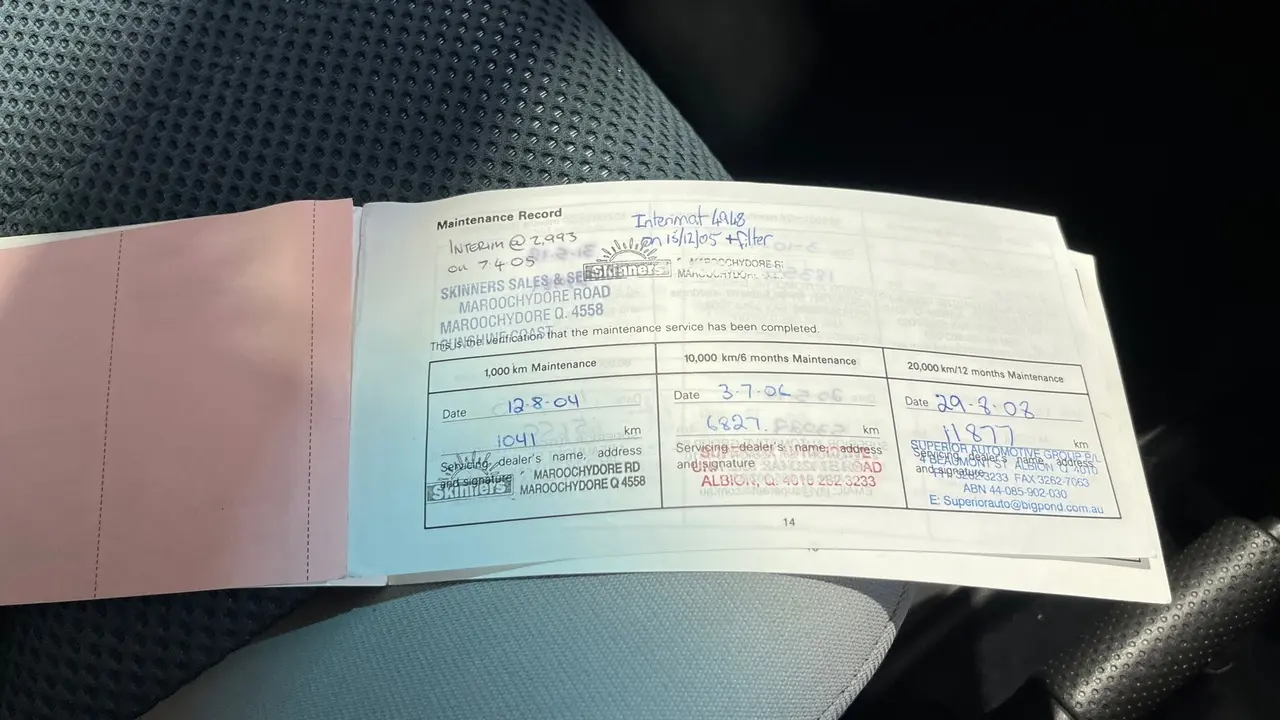 Maintenance Record
INTERIM @ 2,993
on 7 4 05
Interim at 4948
on 15/12/05 + filter
Skinners
MAROOCHYDORE
SKINNERS SALES &
MAROOCHYDORE ROAD
MAROOCHYDORE Q. 4558
SUNSHINE COAST
This is the verification that the maintenance service has been completed.
1,000 km Maintenance
Date 12-8-04
1041 km
Servicing dealer's name, address
and signature
Skinners
MAROOCHYDORE RD
MAROOCHYDORE Q 4558
10,000 km/6 months Maintenance
Date 3-7-06
6827. km
Servicing dealer's name, address
and signature
ROAD
ALBION, Q. 4010 262 3233
20,000 km/12 months Maintenance
Date 29-8-08
11877 km
Servicing dealer's name, address
and signature
SUPERIOR AUTOMOTIVE GROUP P/L
4 BEAUMONT ST ALBION Q 4010
3262-3233 FAX 3262-7063
ABN 44-085-902-030
E: Superiorauto@bigpond.com.au
14